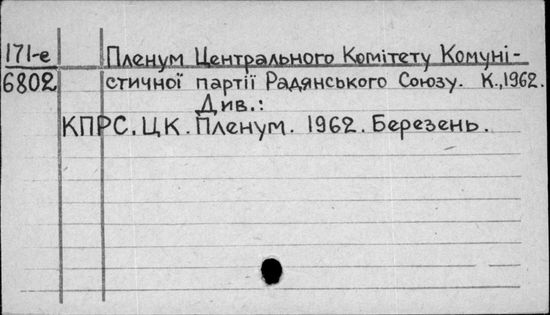 171-е Пленум Центрального Комітету Комуні-
6802 стичної партії Радянського Союзу. К.,1962.
Див.:
КПРС. ЦК. Пленум. 1962. Березень.